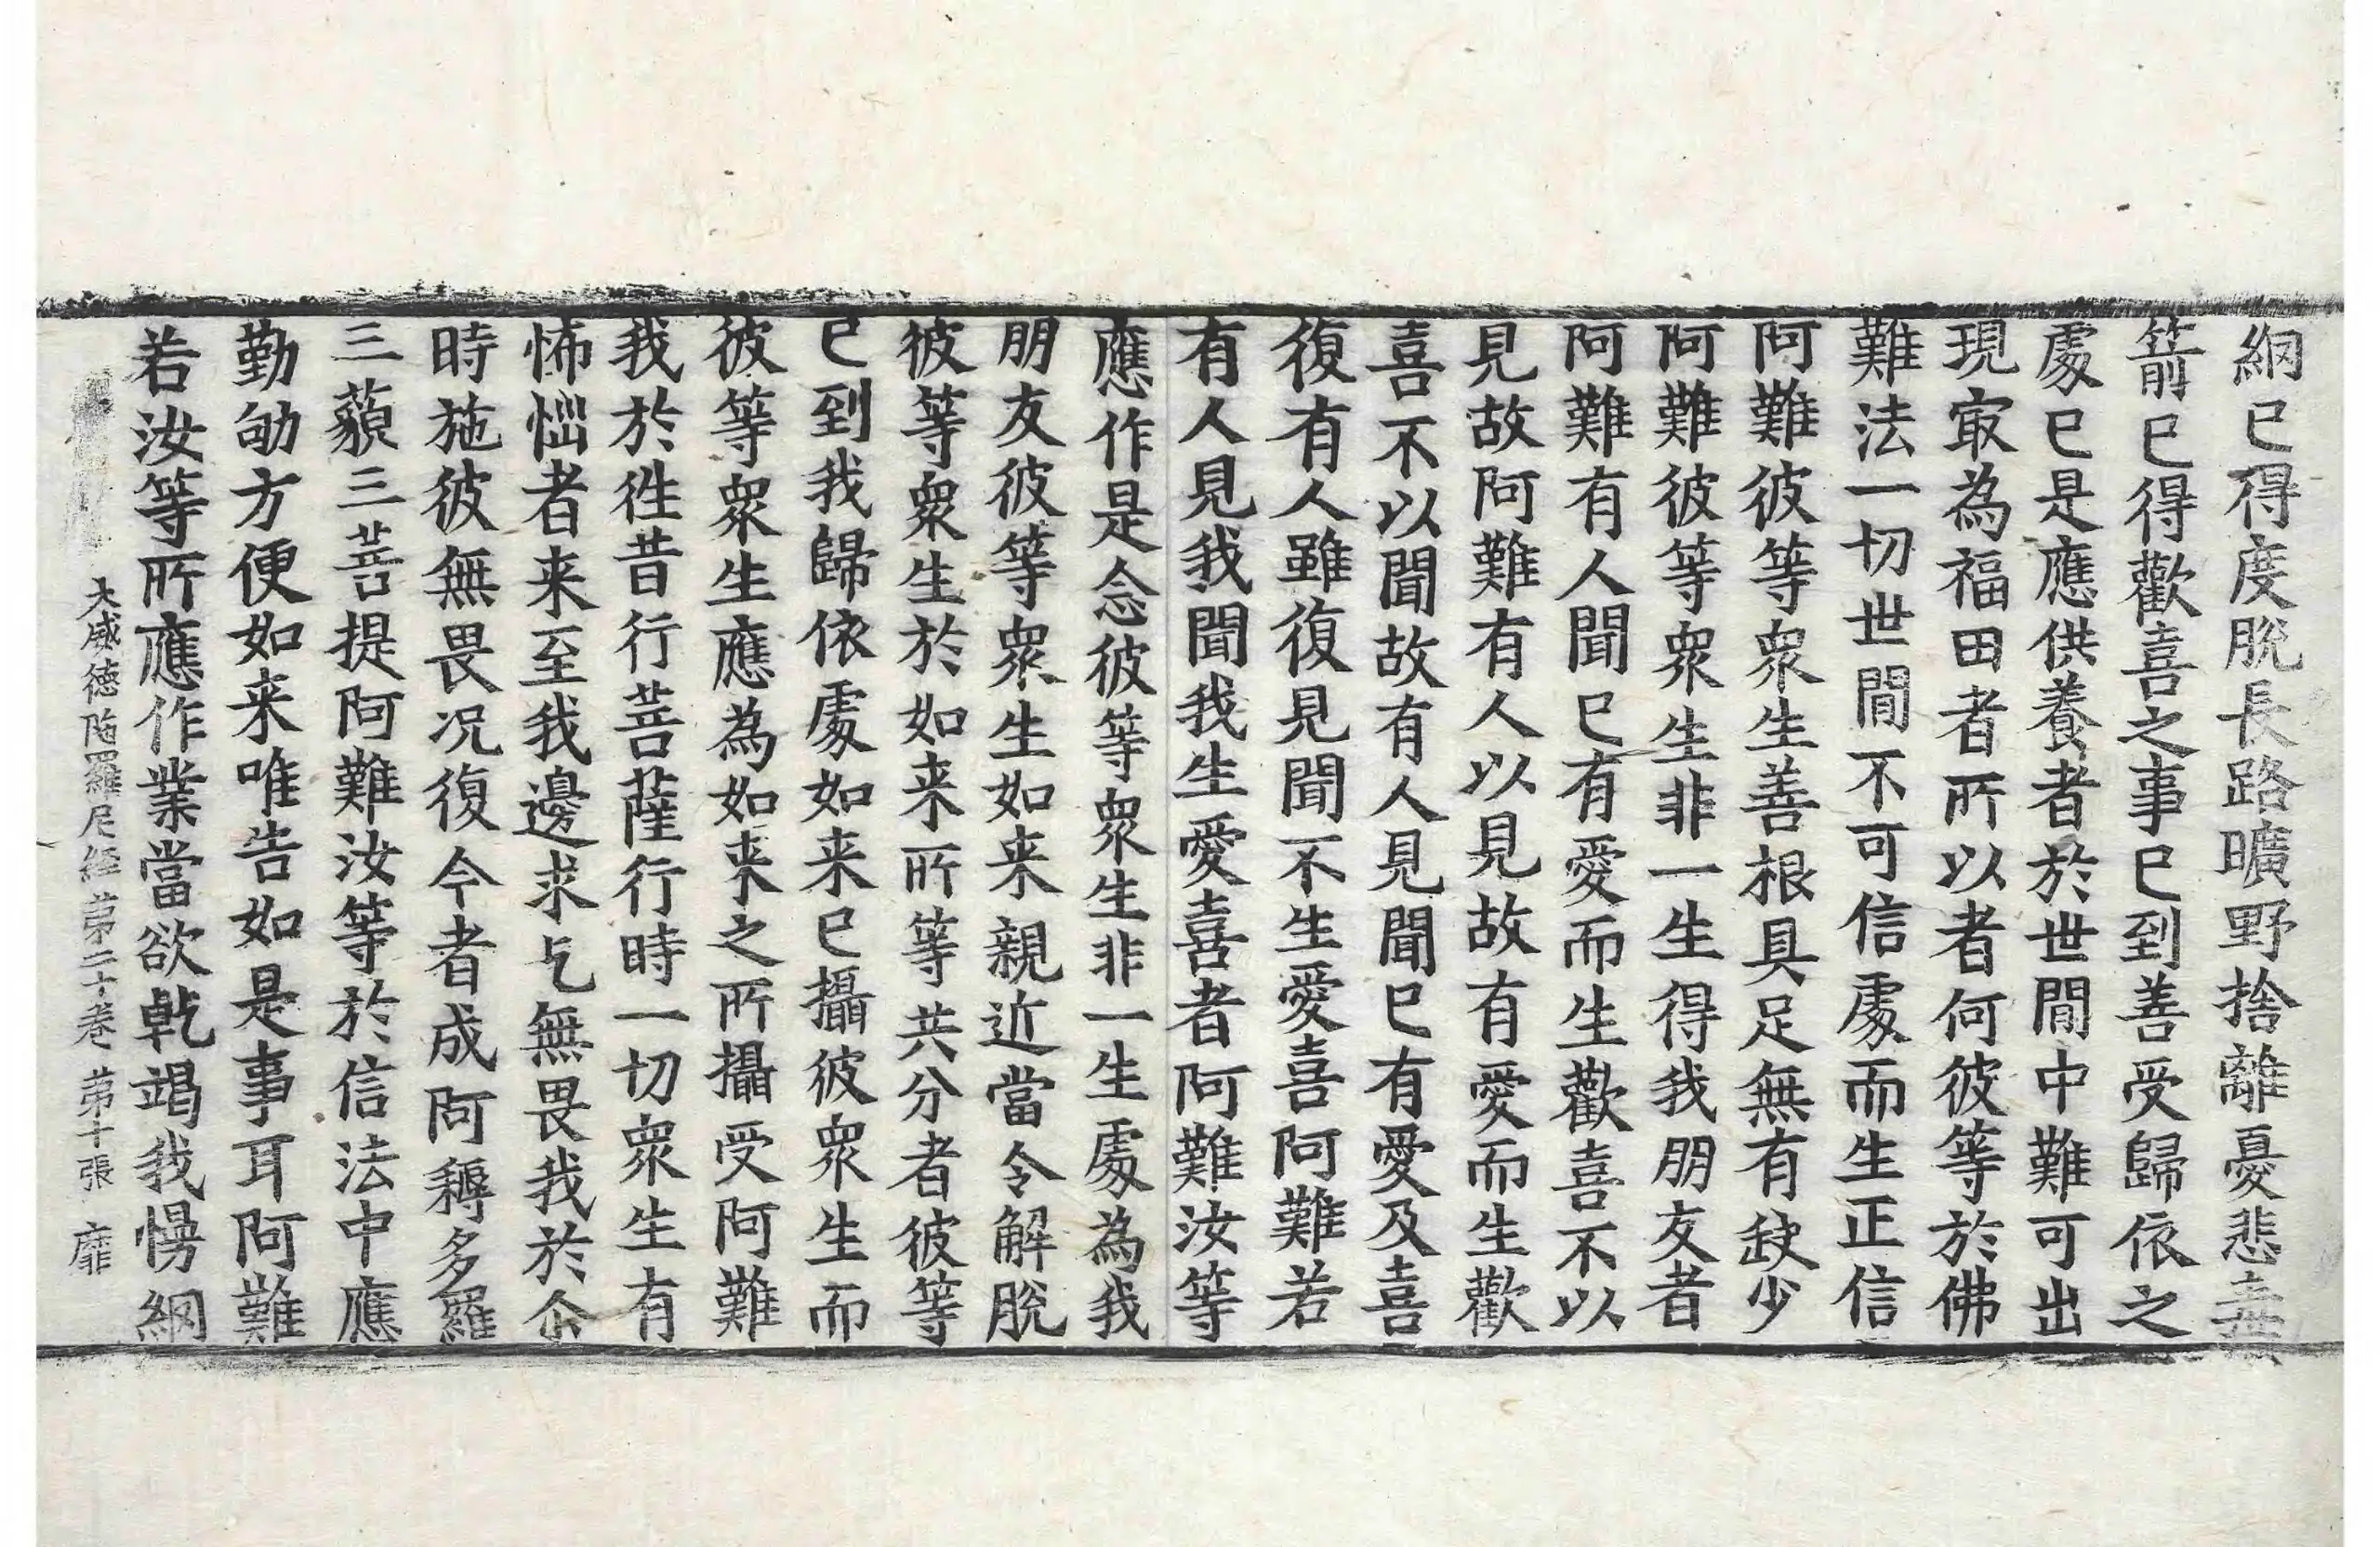 網已得度脫長路曠野捨離憂悲毒
箭已得歡喜之事已到善受歸依之
處已是應供養者於世閒中難可出
現㝡為福田者所以者何彼等於佛
難法一切世閒不可信處而生正信
阿難彼等衆生善根具足無有缺少
阿難彼等衆生非一生得我朋友者
阿難有人聞已有愛而生歡喜不以
見故阿難有人以見故有愛而生歡
喜不以聞故有人見聞已有愛及喜
復有人雖復見聞不生愛喜阿難若
有人見我聞我生愛喜者阿難汝等
應作是念彼等衆生非一生處為我
朋友彼等衆生如来親近當令解脫
彼等衆生於如来所等共分者彼等
已到我歸依處如来已攝彼衆生而
彼等衆生應為如来之所攝受阿難
我於徃昔行菩薩行時一切衆生有
怖㤕者来至我邊求乞無畏我於尒
時施彼無畏况復今者成阿耨多羅
三藐三菩提阿難汝等於信法中應
勤劬方便如来唯告如是事耳阿難
若汝等所應作業當欲乾竭我慢網
大威德陁羅尼経第二十卷 第十張 靡